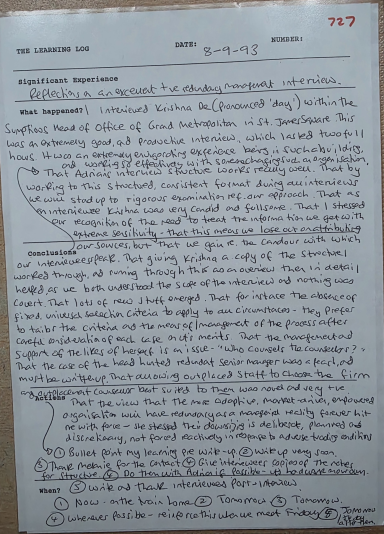 727
THE LEARNING LOG DATE: 8-9-93 NUMBER:
Significant Experience
Reflecting on an excellent +ve redundancy management interview.
What happened? I interviewed Krishna De (pronounced 'day') within the
sumptious Head of Office of Grand Metropolitan in St. James Square. This
was an extremely good, and productive interview, which lasted two full
hours. It was an extremely invigorating experience being in such a building,
and working so effectively with someone in such an organisation.
That Adrian's interview structure works really well. That by
working to this structured, consistent format during our interviews
we will stand up to rigorous examination re. our approach. That as
an interviewee Krishna was very candid and fullsome. That I stressed
our recognition of the need to treat the information we get with
extreme sensitivity - that this means we lose out on attributing
Conclusions our sources, but that we gain re. the candour with which
our interviewees speak. That giving Krishna a copy of the structure
worked through, and running through this as an overview then in detail
helped as we both understood the scope of the interview and nothing was
covert. That lots of new stuff emerged. That for instance the absence of
fixed, universal selection criteria to apply to all circumstances - they prefer
to tailor the criteria and the means of management of the process after
careful consideration of each case on its merits. That the management and
support of the likes of herself is an issue - 'who counsels the counsellor?'
That the case of the head hunted redundant Senior manager was a pearl, and
must be written up. That allowing outplaced staff to choose the firm
an outplacement counsellor best suited to them was novel and very +ve
Actions That the view that the more adaptive, market-driven, empowered
organisation will have redundancy as a managerial reality forever hit
me with force - she stressed their downsizing is deliberate, planned and
discretionary, not forced reactively in response to adverse trading conditions
① Bullet point my learning pre write-up ② Write up very soon.
③ Thank Melanie for the contact ④ Give interviewees copies of the notes
for structure ④ Do them with Adrian if possible - up
When? ⑤ Write and thank interviewees post-interview
① Now - on the train home ② Tomorrow ③ Tomorrow.
④ Wherever possible - reinforce this when we meet Friday ⑤ Tomorrow